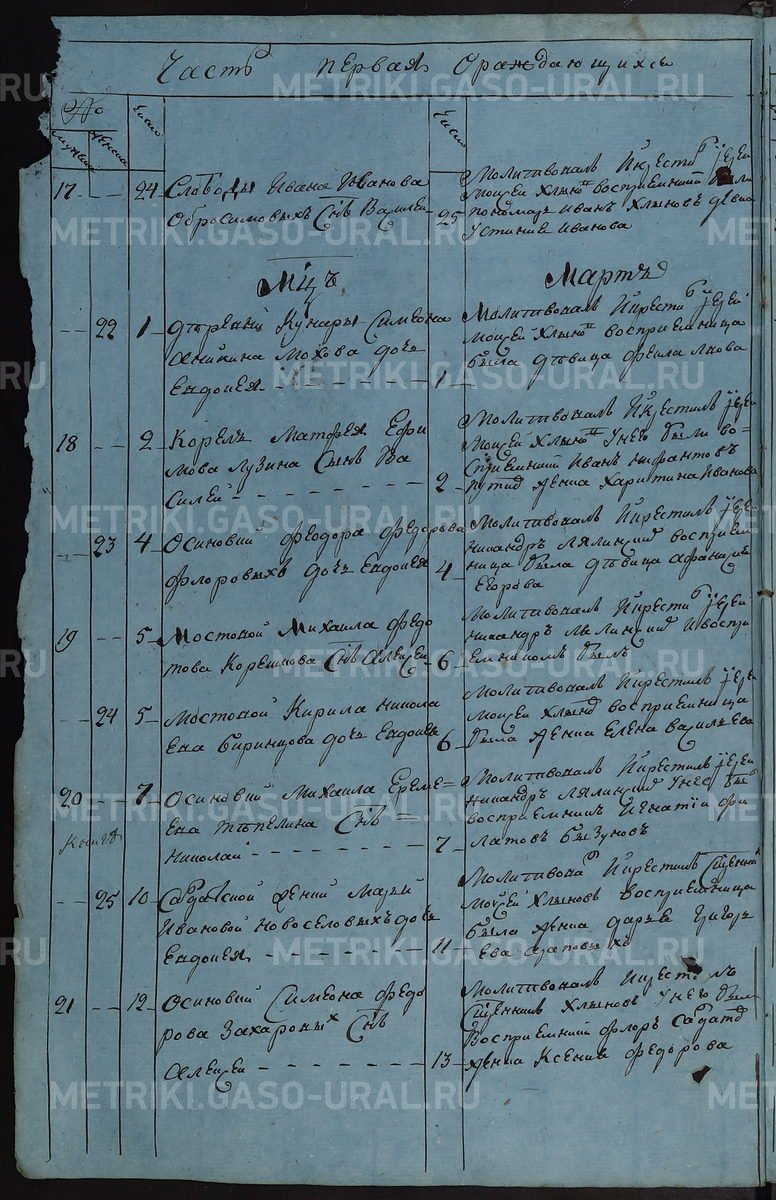 Часть первая Ораждающихся
№
число
число
мужеск
женска
17 — 24 Слободы Ивана Иванова
Обросимовыхъ Снъ Василей
25
Молитвовалъ Икрестил іерей
Моисей Хлынов восприемники были
пономарь Иванъ Хлыновъ девка
Устиние Иванова
Мцъ Мартъ
— 22 1 дъревни Кунары Симеона
Аникина Мохова дочь
Евдокея
1
Молитвовалъ Икрестил іерей
Моисей Хлынов восприемница
была дъвица Иванова
18 — 2 Корелъ Матфея Ефи
мова Лузина Сынъ Ва
силей
2
Молитвовалъ Икрестилъ іерей
Моисей Хлынов Унего были во=
сприемники Иванъ Нифантовъ
женка Харитина Иванова
— 23 4 Осиновки Феодора Федорова
Флоровыхъ дочь Евдокея
4
Молитвовалъ Икрестилъ іерей
Никандръ Лялинский восприем
ница была дъвица
Егорова
19 — 5 Мостовой Михаила Федо
това Корешкова Снъ Алексей
6
Молитвовалъ Икрестил іерей
Никандръ Лялинский Ивоспри
емникомъ былъ
— 24 5 Мостовой Кирила Никола
ева Биринцова дочь Евдокея
6
Молитвовалъ Икрестилъ іерей
Моисей Хлынов восприемница
была женка Елена Васильева
20 — 7 Осиновки Михаила Ереме=
ева Тъпелина Снъ =
Николай
7
Молитвовалъ Икрестилъ іерей
Никандръ Лялинский Унего был
восприемникъ Игнатий Фи
латовъ Бызуновъ
книга
— 25 10 Салдатской женки Марьи
Ивановой Новоселовыхъ дочь
Евдокея
11
Молитвовал Икрестилъ Сщенник
Моисей Хлыновъ восприемница
была женка Дарья Григорь
ева Араповыхъ
21 — 12 Осиновки Симеона Федо
рова Захаровых Снъ
Алексей
13
Молитвовалъ Икрестилъ
Сщенникъ Хлыновъ Унего были
Восприемники Флоръ Салдатов
женка Ксения Федорова
METRIKI.GASO-URAL.RU